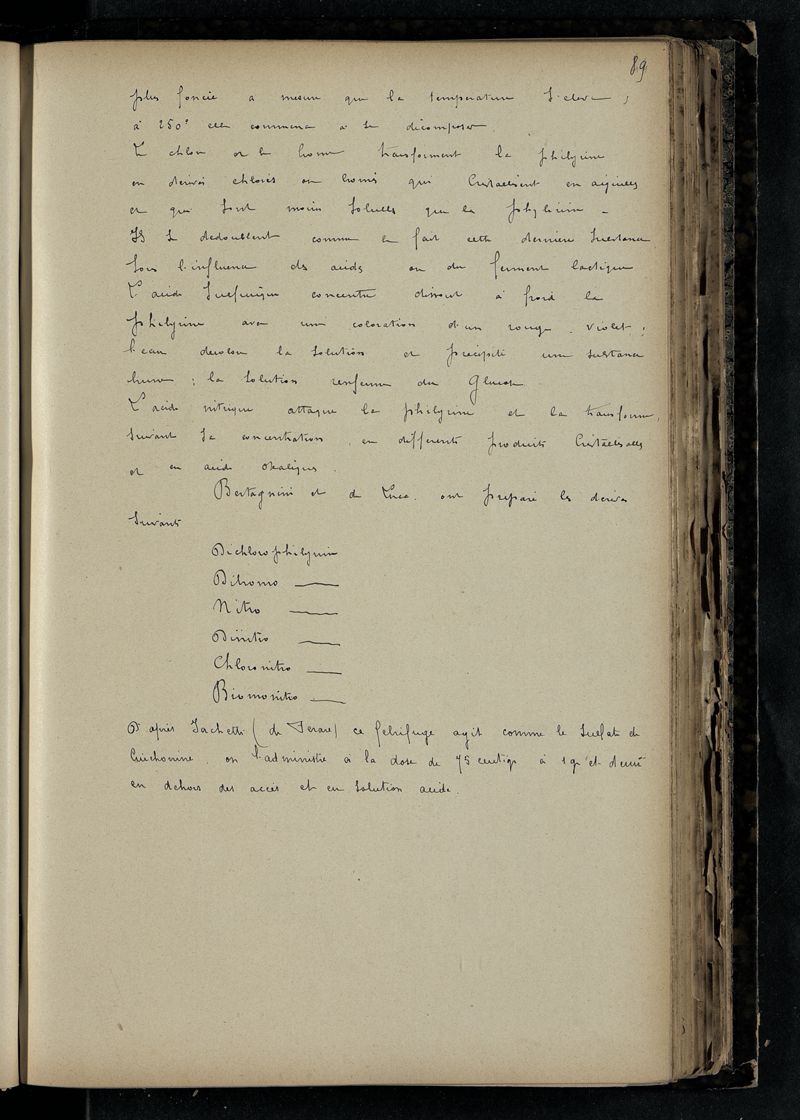 89
plus foncée a mesure que la temperature s'eleve ;
à 250° elle commence à se décomposer.
Le chlore et le brome transforment la philyrine
en derivés chlorés ou bromés qui cristallisent en aiguilles
et qui sont moins solubles que la philyrine -
Ils se dedoublent comme le fait cette derniere substance
sous l'influence des acides ou du ferment lactique
L'acide sulfurique concentré dissout à froid la
philyrine avec une coloration d'un rouge-violet ;
l'eau decolore la solution et precipite une substance
brune ; la solution renferme du Glucose
L'acide nitrique attaque la philyrine et la transforme,
suivant sa concentration, en differents produits cristallisables
et en acide oxalique.
Bertagnini et de Luca ont preparé les derivés
suivants
Dichlorophilyrine
Dibromo ——
Nitro ——
Dinitro ——
Chloronitro ——
Bromonitro ——
D'après Jachetti (de Ferare) ce febrifuge agit comme le sulfate de
Cinchonine. on l'administre à la dose de 75 centigr à 1 gr et demi
en dehors des accès et en solution acide.